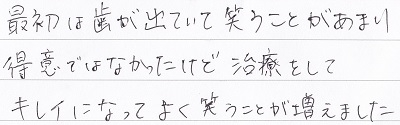 最初は歯が出ていて笑うことがあまり
得意ではなかったけど治療をして
キレイになってよく笑うことが増えました